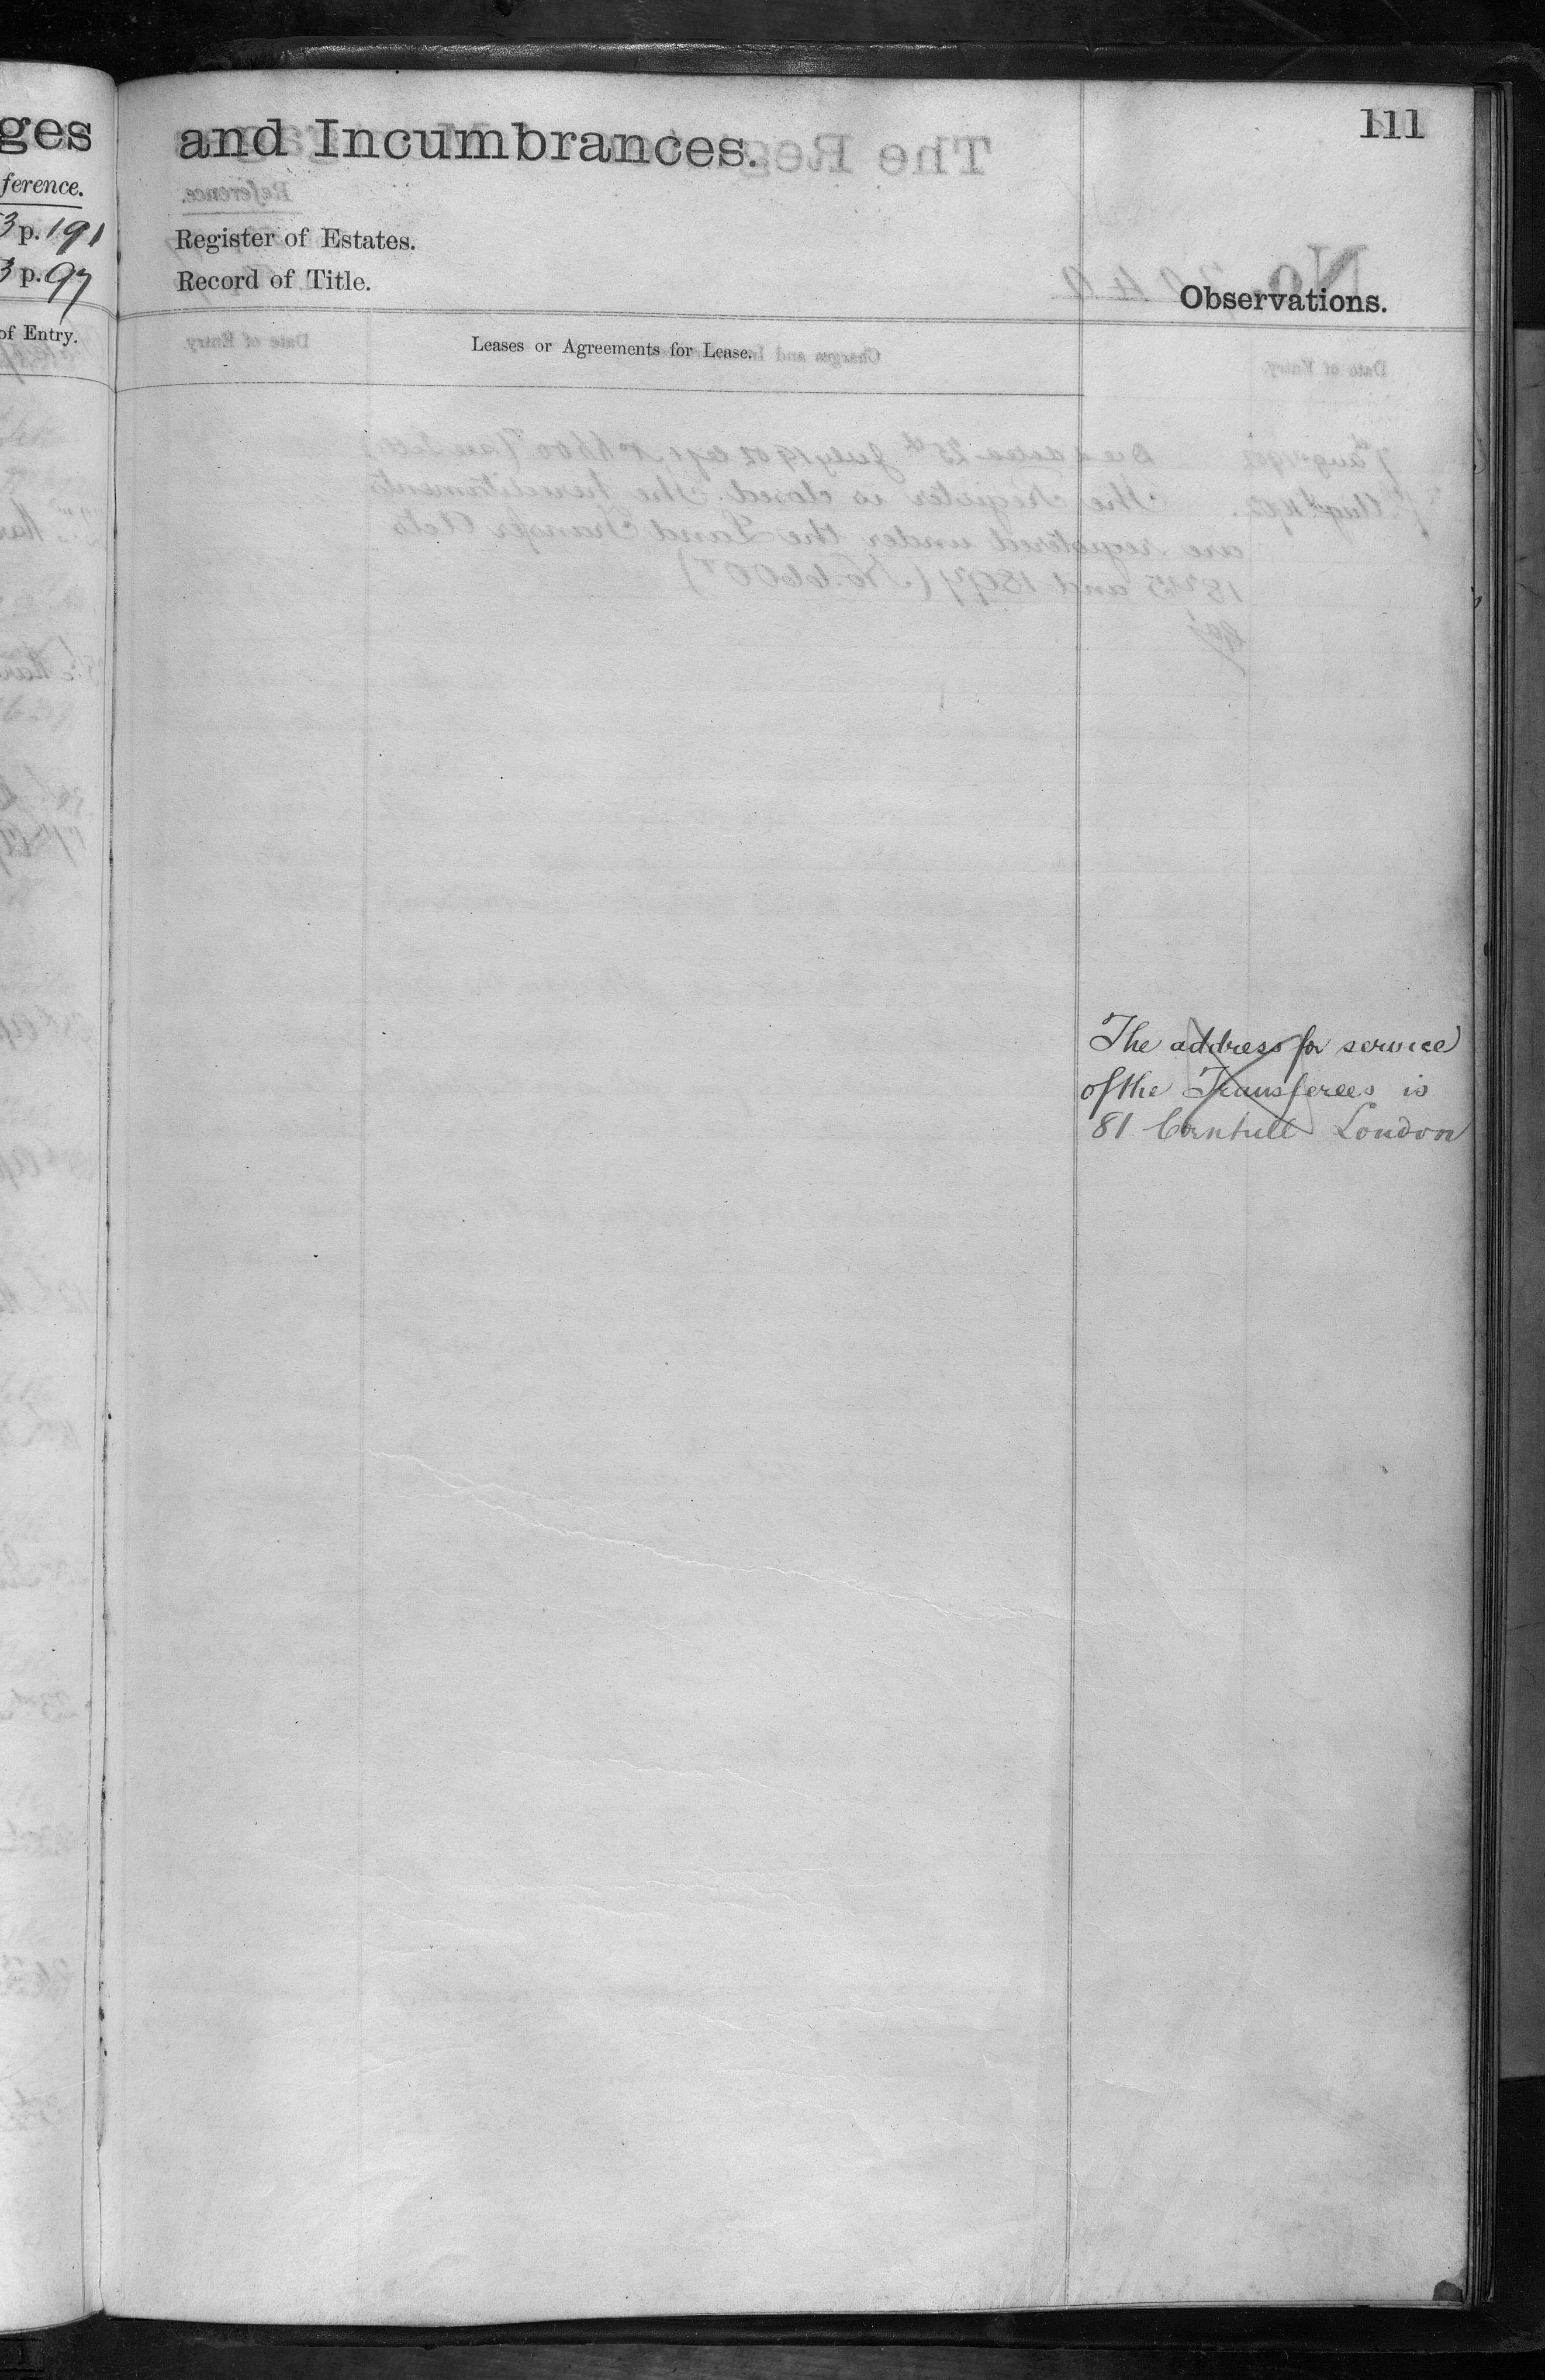 ges
ference.
3 p. 191
3 p. 97
of Entry.
and Incumbrances.
111
Register of Estates.
Record of Title.
Observations.
Leases or Agreements for Lease.
The address for service
of the Transferees is
81 Cornhill London